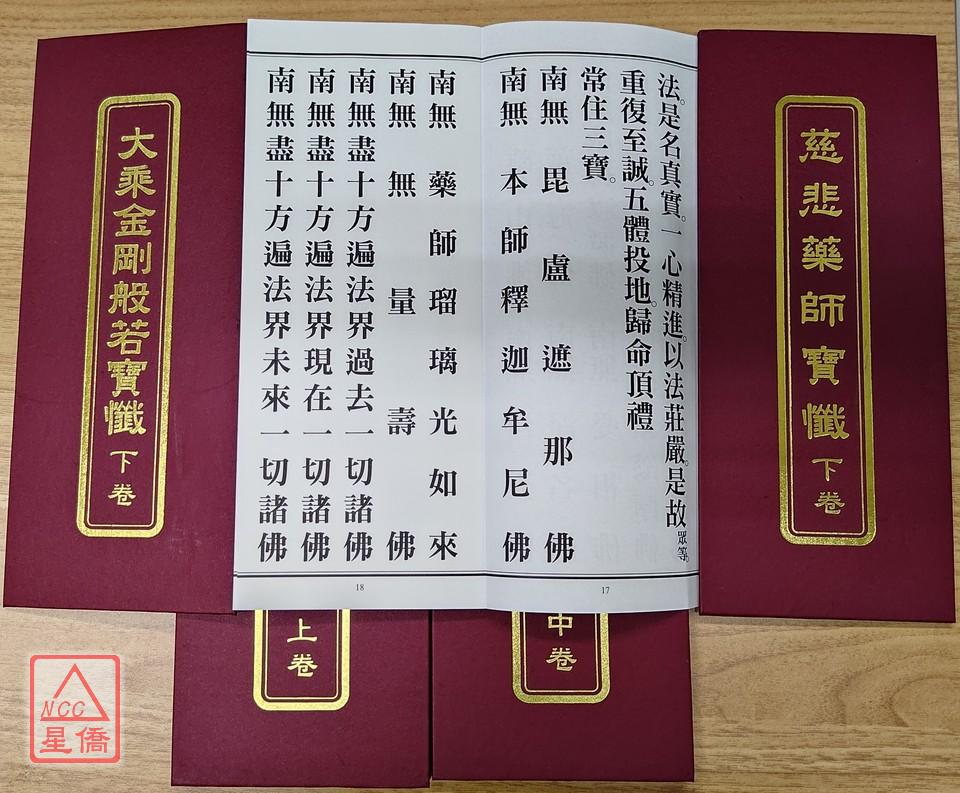 慈悲藥師寶懺 下卷
法。是名真實。一心精進。以法莊嚴。是故眾等。
重復至誠。五體投地。歸命頂禮
常住三寶。
南無毘盧遮那佛
南無本師釋迦牟尼佛
17
南無藥師瑠璃光如來
南無無量壽佛
南無盡十方遍法界過去一切諸佛
南無盡十方遍法界現在一切諸佛
南無盡十方遍法界未來一切諸佛
18
大乘金剛般若寶懺 下卷
中卷
上卷
NCC
星僑